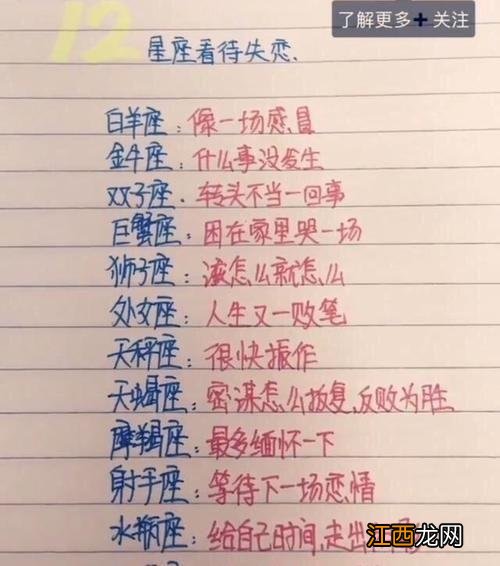 了解更多+ 关注
12
星座看待失恋.
白羊座：像一场感冒
金牛座：什么事没发生
双子座．转头不当一回事
巨蟹座：困在家里哭一场
狮子座：该怎么就怎么
处女座：人生又一败笔
天秤座：很快振作
天蝎座：密谋怎么报复、反败为胜
摩羯座：最多缅怀一下
射手座：等待下一场恋情
水瓶座：给自己时间，走出
江西龙网